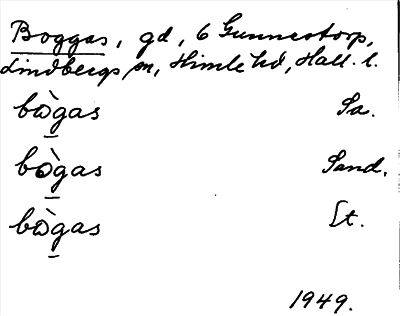 Boggas, gd, 6 Gunnestorp,
Lindbergs sn, Himle hd, Hall. l.
bògas Sa.
bògas Sand.
bògas St.
1949.